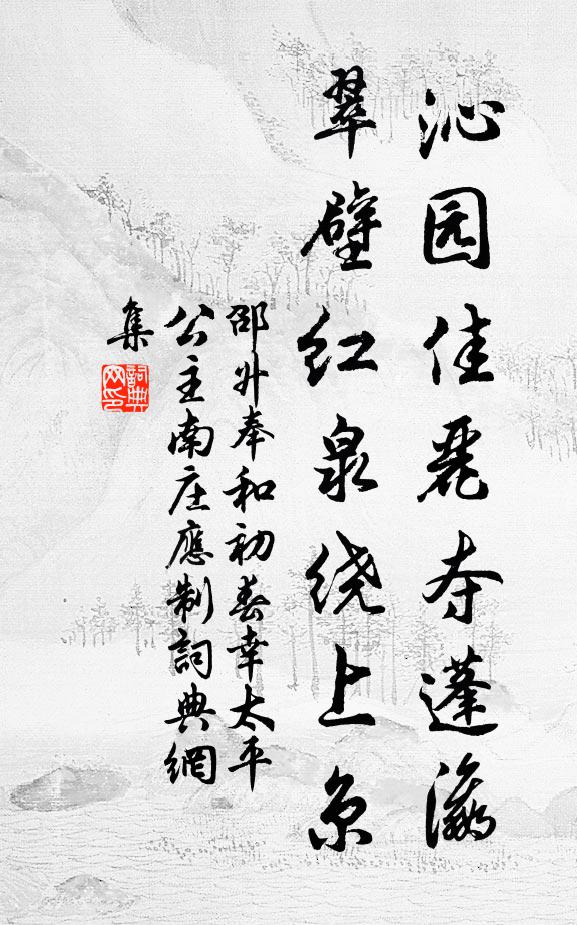 沁园佳麗夺蓬瀛
翠壁红泉绕上京
邵升奉和初春幸太平
公主南庄應制詞典網
集
詞典網印